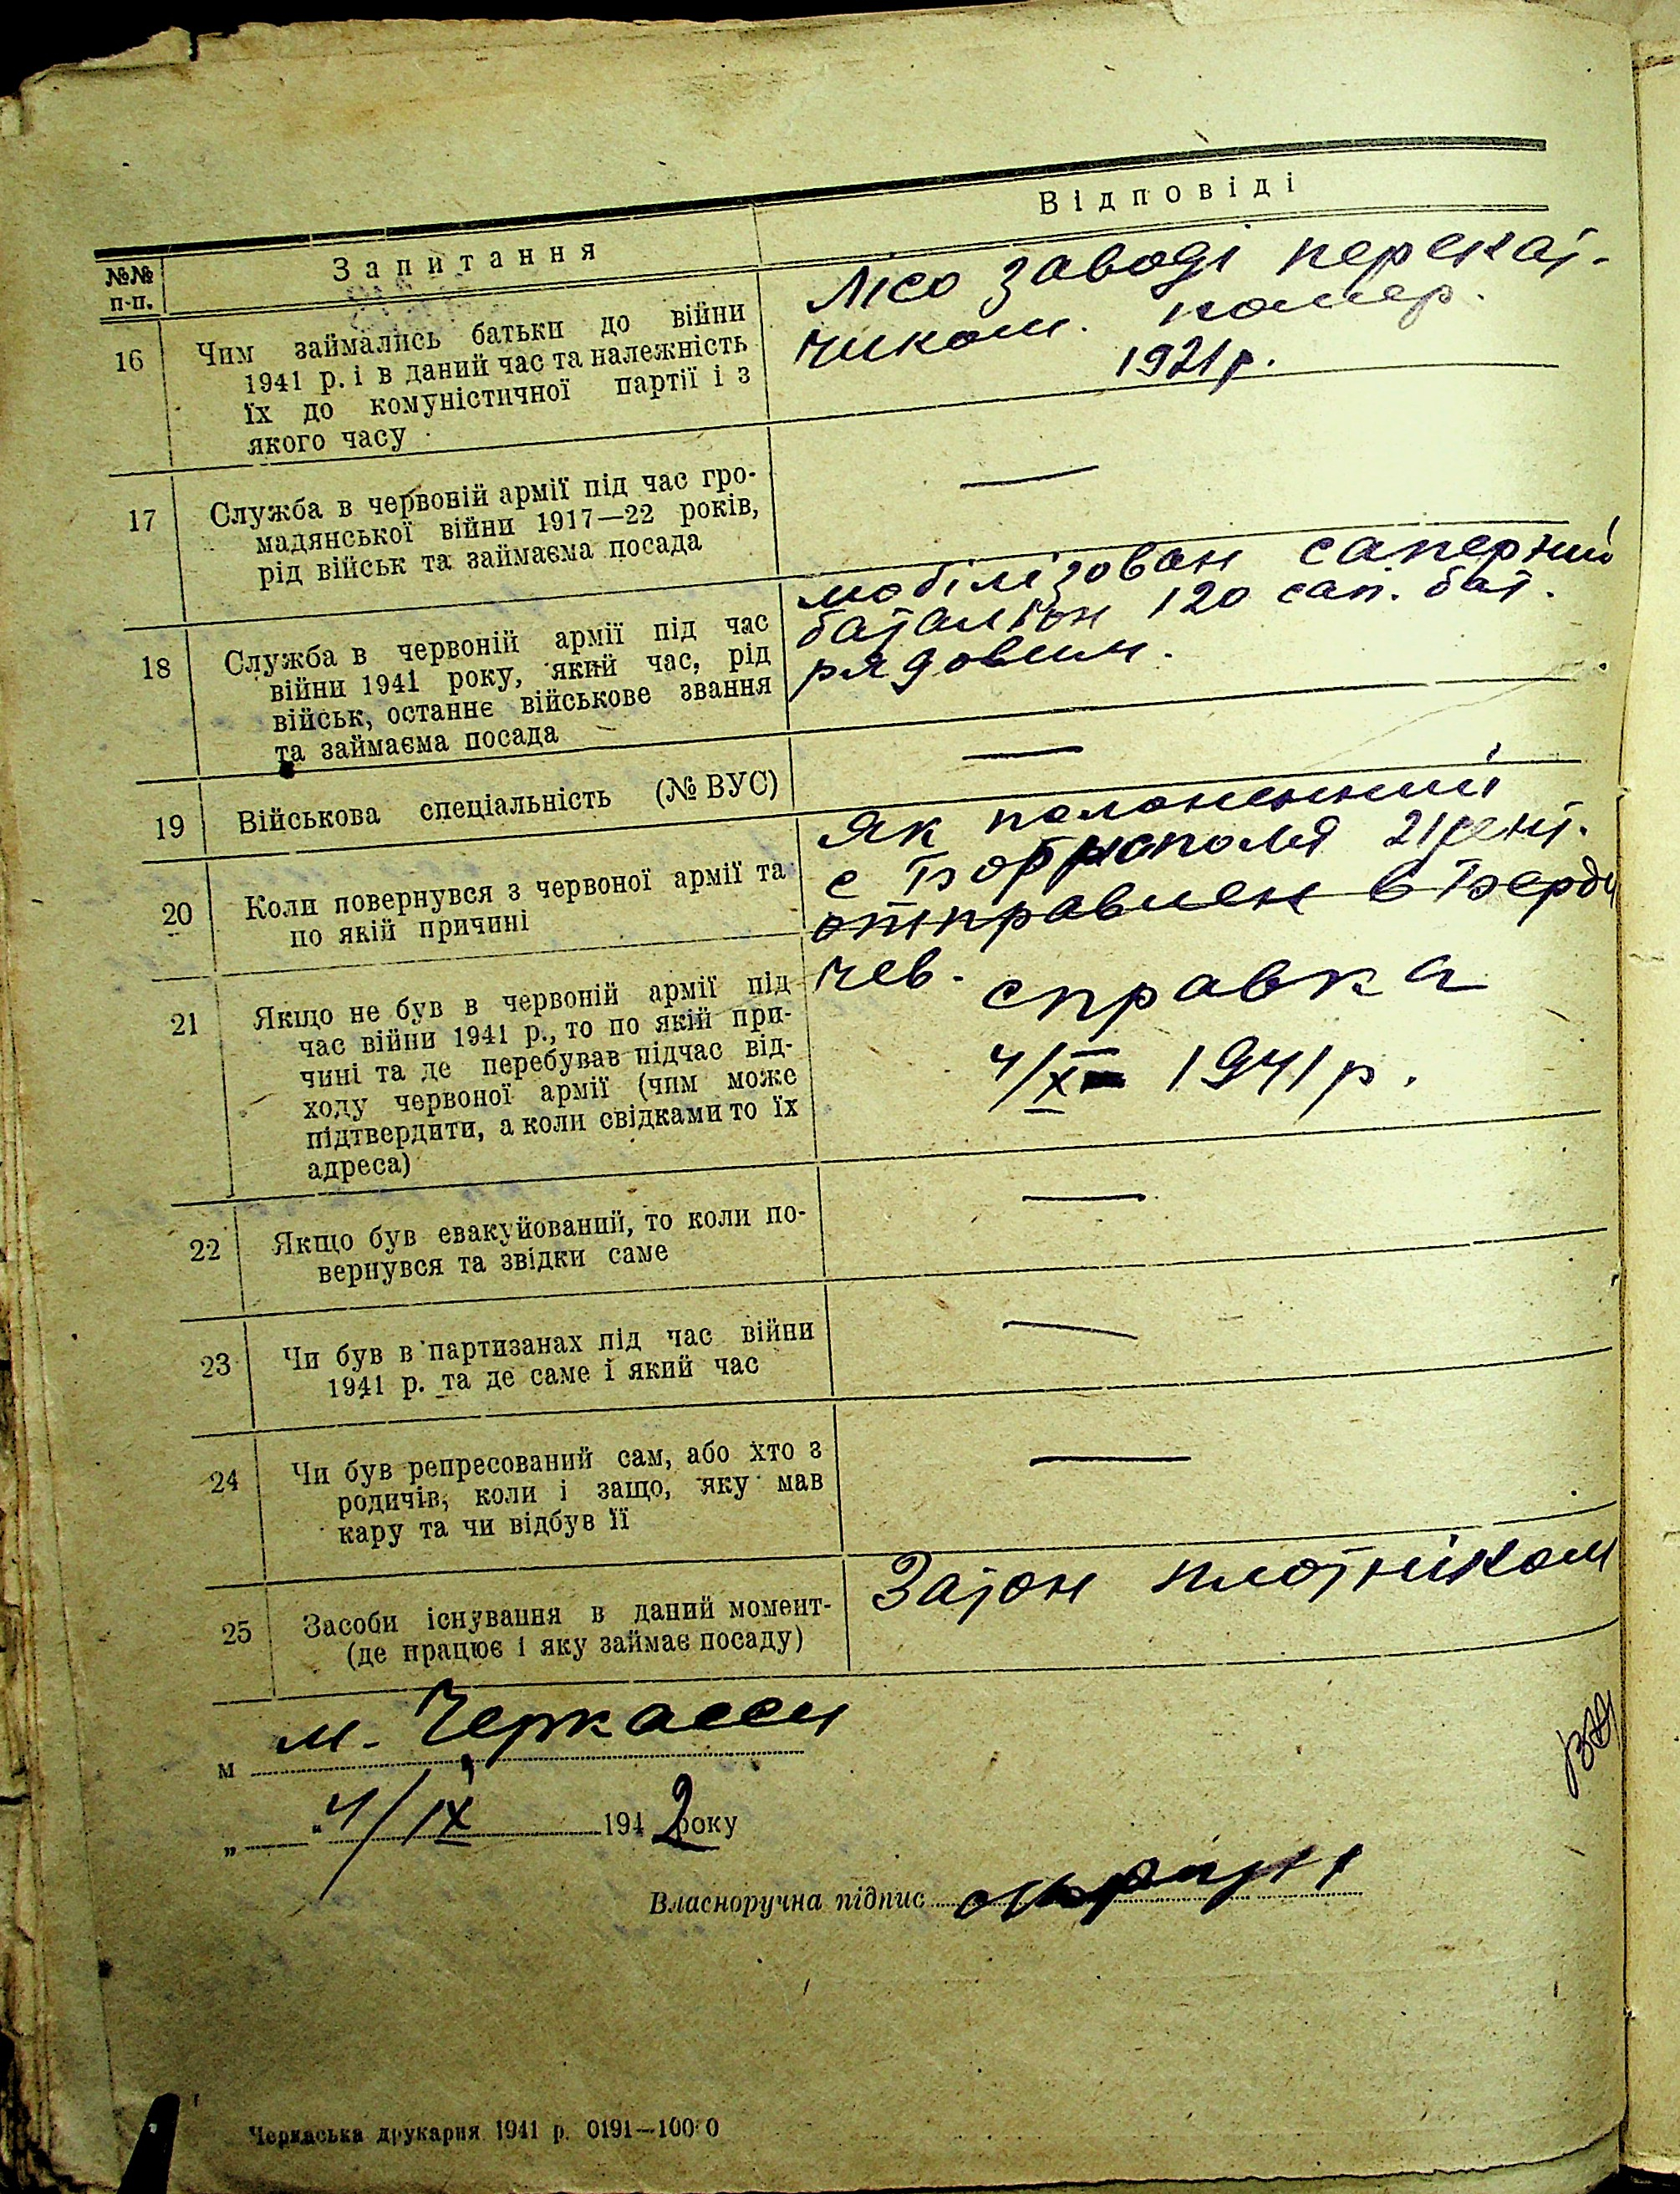 №№ п-п. Запитання Відповіді
16 Чим займались батьки до війни
1941 р. і в даний час та належність
їх до комуністичної партії і з
якого часу
Лісо заводі перекат-
чиком. помер.
1921 р.
17 Служба в червоній армії під час гро-
мадянської війни 1917—22 років,
рід військ та займаєма посада
—
18 Служба в червоній армії під час
війни 1941 року, який час, рід
військ, останнє військове звання
та займаєма посада
мобілізован саперний
баталіон 120 сап. бат.
рядовим.
19 Військова спеціальність (№ ВУС)
—
20 Коли повернувся з червоної армії та
по якій причині
Як полоненний
с Борисполя 21 сент.
отправлен в Берди
чев. справка
4/X 1941 р.
21 Якщо не був в червоній армії під
час війни 1941 р., то по якій при-
чині та де перебував підчас від-
ходу червоної армії (чим може
підтвердити, а коли свідками то їх
адреса)
22 Якщо був евакуйований, то коли по-
вернувся та звідки саме
—
23 Чи був в партизанах під час війни
1941 р. та де саме і який час
—
24 Чи був репресований сам, або хто з
родичів, коли і защо, яку мав
кару та чи відбув її
—
25 Засоби існування в даний момент-
(де працює і яку займає посаду)
Затон плотніком
м м. Черкасси
„ “ 4/IX 1942 року
Власноручна підпис
Черкаська друкарня 1941 р. 0191—10000